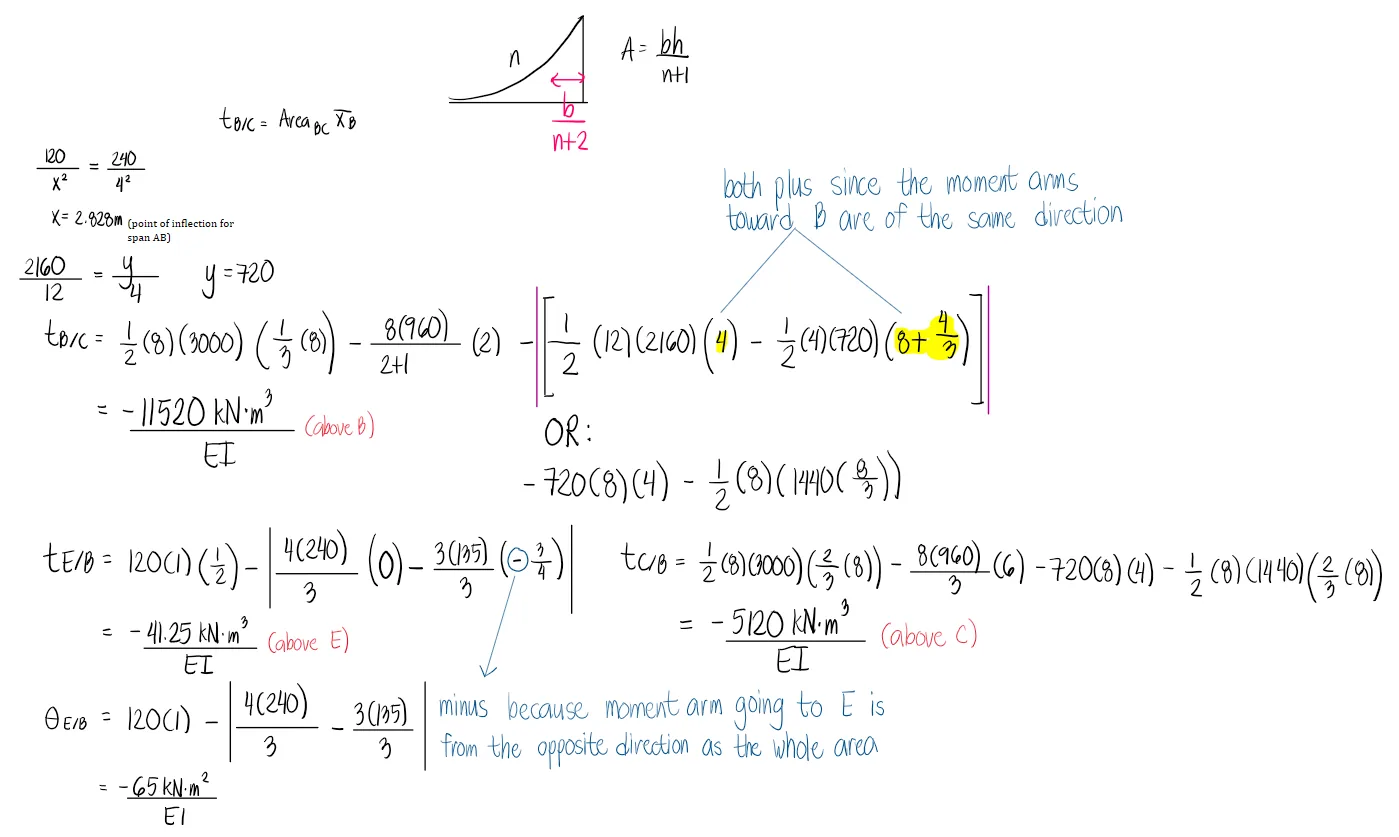 n
A = bh/(n+1)
b/(n+2)
t_B/C = Area_BC x̄_B
120/x² = 240/4²
x = 2.828m (point of inflection for
span AB)
both plus since the moment arms
toward B are of the same direction
2160/12 = y/4    y = 720
t_B/C = 1/2 (8)(3000)(1/3 (8)) - 8(960)/(2+1) (2) - |[1/2 (12)(2160)(4) - 1/2 (4)(720)(8 + 4/3)]|
= -11520 kN·m³/EI (above B)
OR:
- 720(8)(4) - 1/2 (8)(1440(8/3))
t_E/B = 120(1)(1/2) - |4(240)/3 (0) - 3(135)/3 (-3/4)|
= -41.25 kN·m³/EI (above E)
t_C/B = 1/2 (8)(3000)(2/3 (8)) - 8(960)/3 (6) - 720(8)(4) - 1/2 (8)(1440)(2/3 (8))
= -5120 kN·m³/EI (above C)
θ_E/B = 120(1) - |4(240)/3 - 3(135)/3|
= -65 kN·m²/EI
minus because moment arm going to E is
from the opposite direction as the whole area